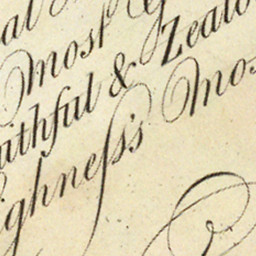 al
Most
aithful & Zealo
ighneſs's mos